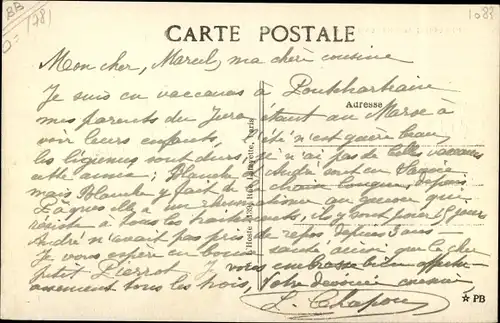 BB
(78)
1083
CARTE POSTALE
Mon cher Marcel, ma chère cousine
Je suis en vacances à Pontchartrain
Adresse
mes parents du Jura étant au Maroc à
voir leurs enfants, l'été n'est guère beau
les sont durs, je n'ai pas de belles vacances
cette année; Blanche & André sont en
mais Blanche y fait de la chaise longue, depuis
Pâques elle a un rhumatisme au genou qui
résiste à tous les traitements, ils y sont pour 15 jours
André n'avait pas pris de repos depuis 3 ans
Je vous espère en bonne santé ainsi que le cher
petit Pierrot Je vous embrasse bien affectu-
eusement tous les trois, Votre dévouée cousine
L. Chapon
PB